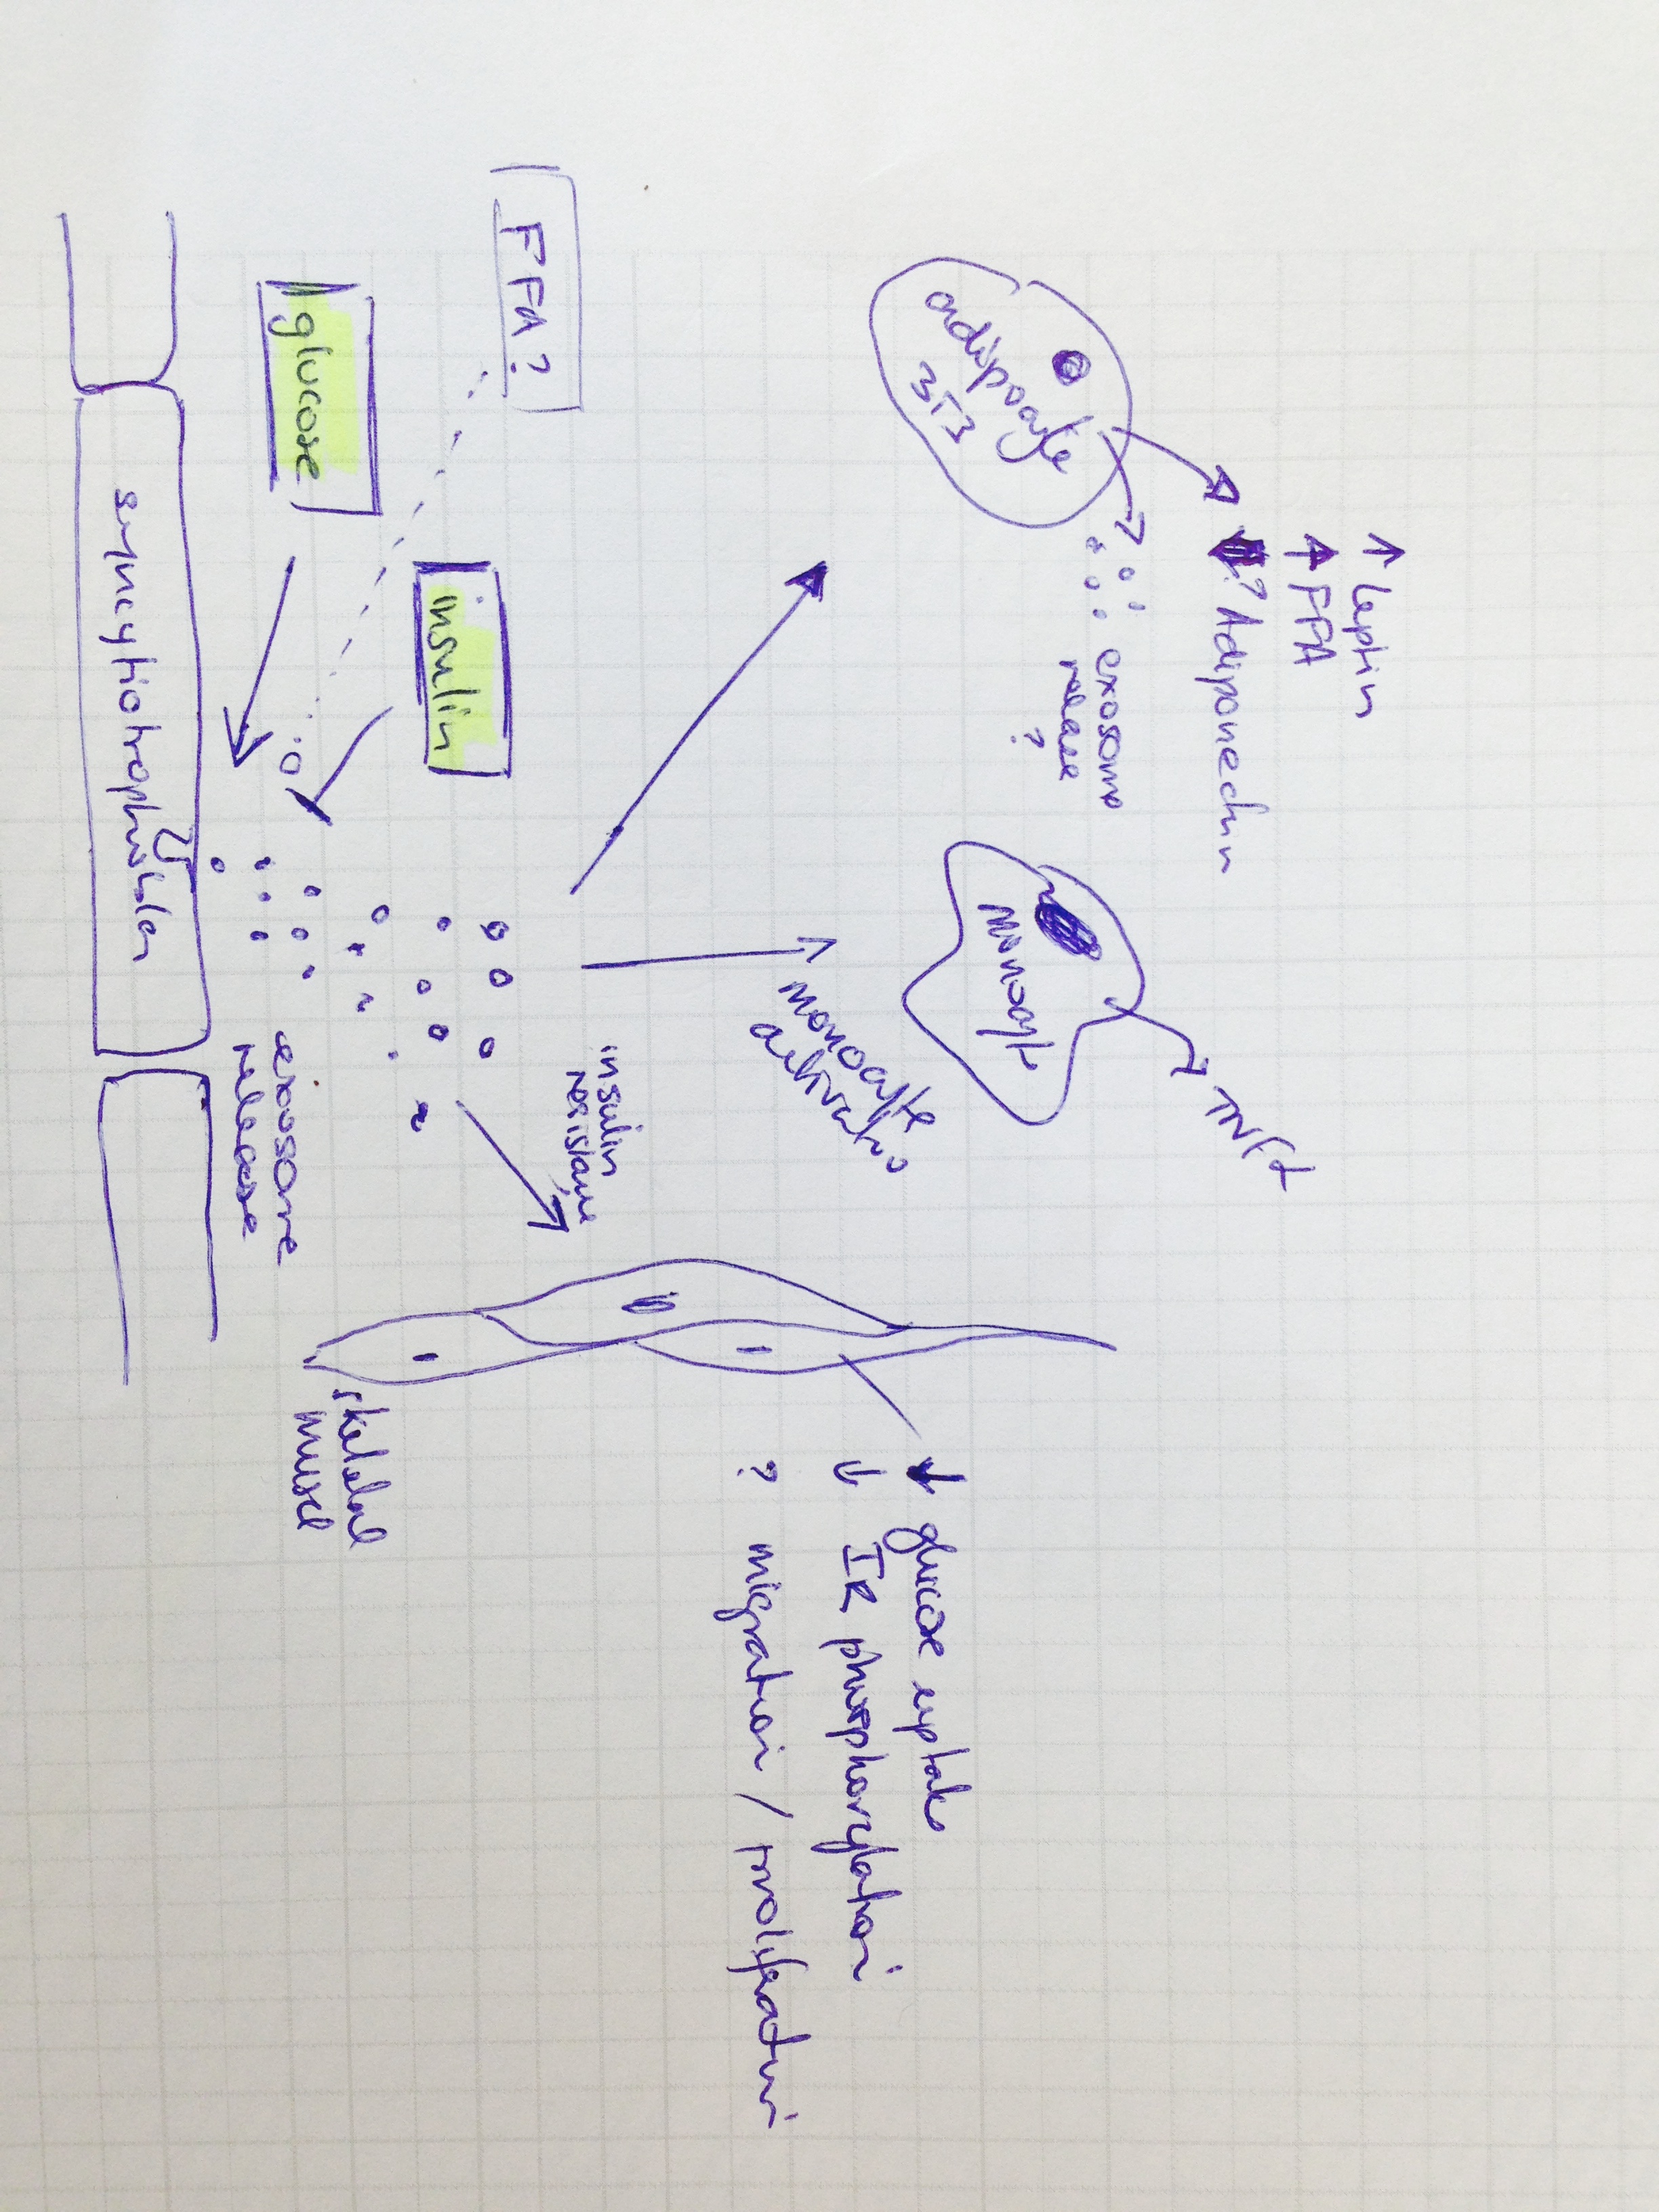 ↑ Leptin
↑ FFA
? Adiponectin
exosome
release
?
adipocyte
3T3
TNFα
monocyte
monocyte
activation
FFA?
insulin
glucose
insulin
resistance
↓ glucose uptake
↓ IR phosphorylation
? migration / proliferation
exosome
release
skeletal
muscle
syncytiotrophoblast